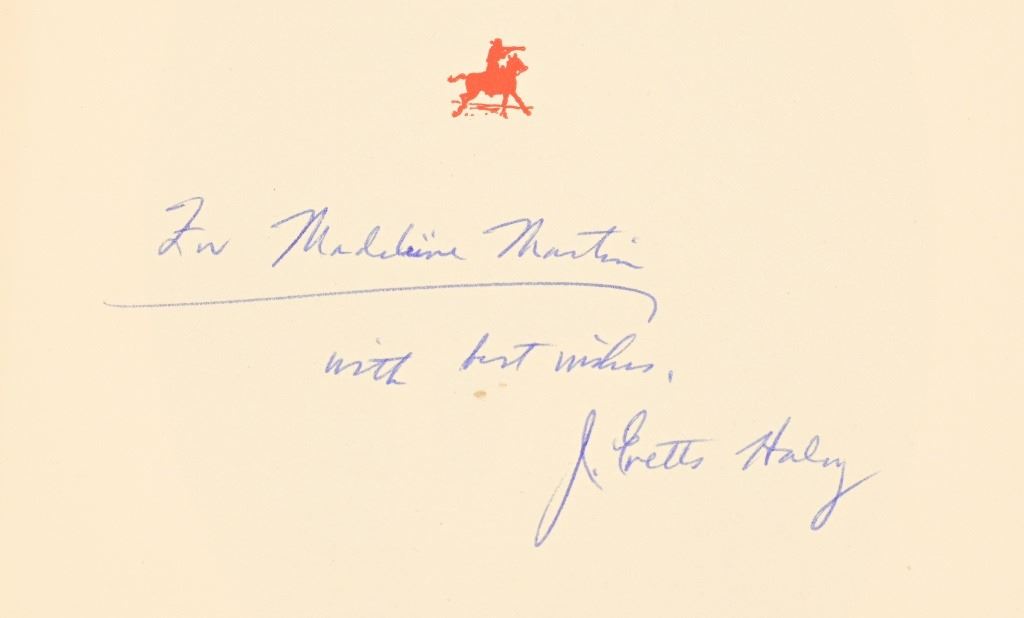 For Madeleine Martin
with best wishes.
J. Evetts Haley